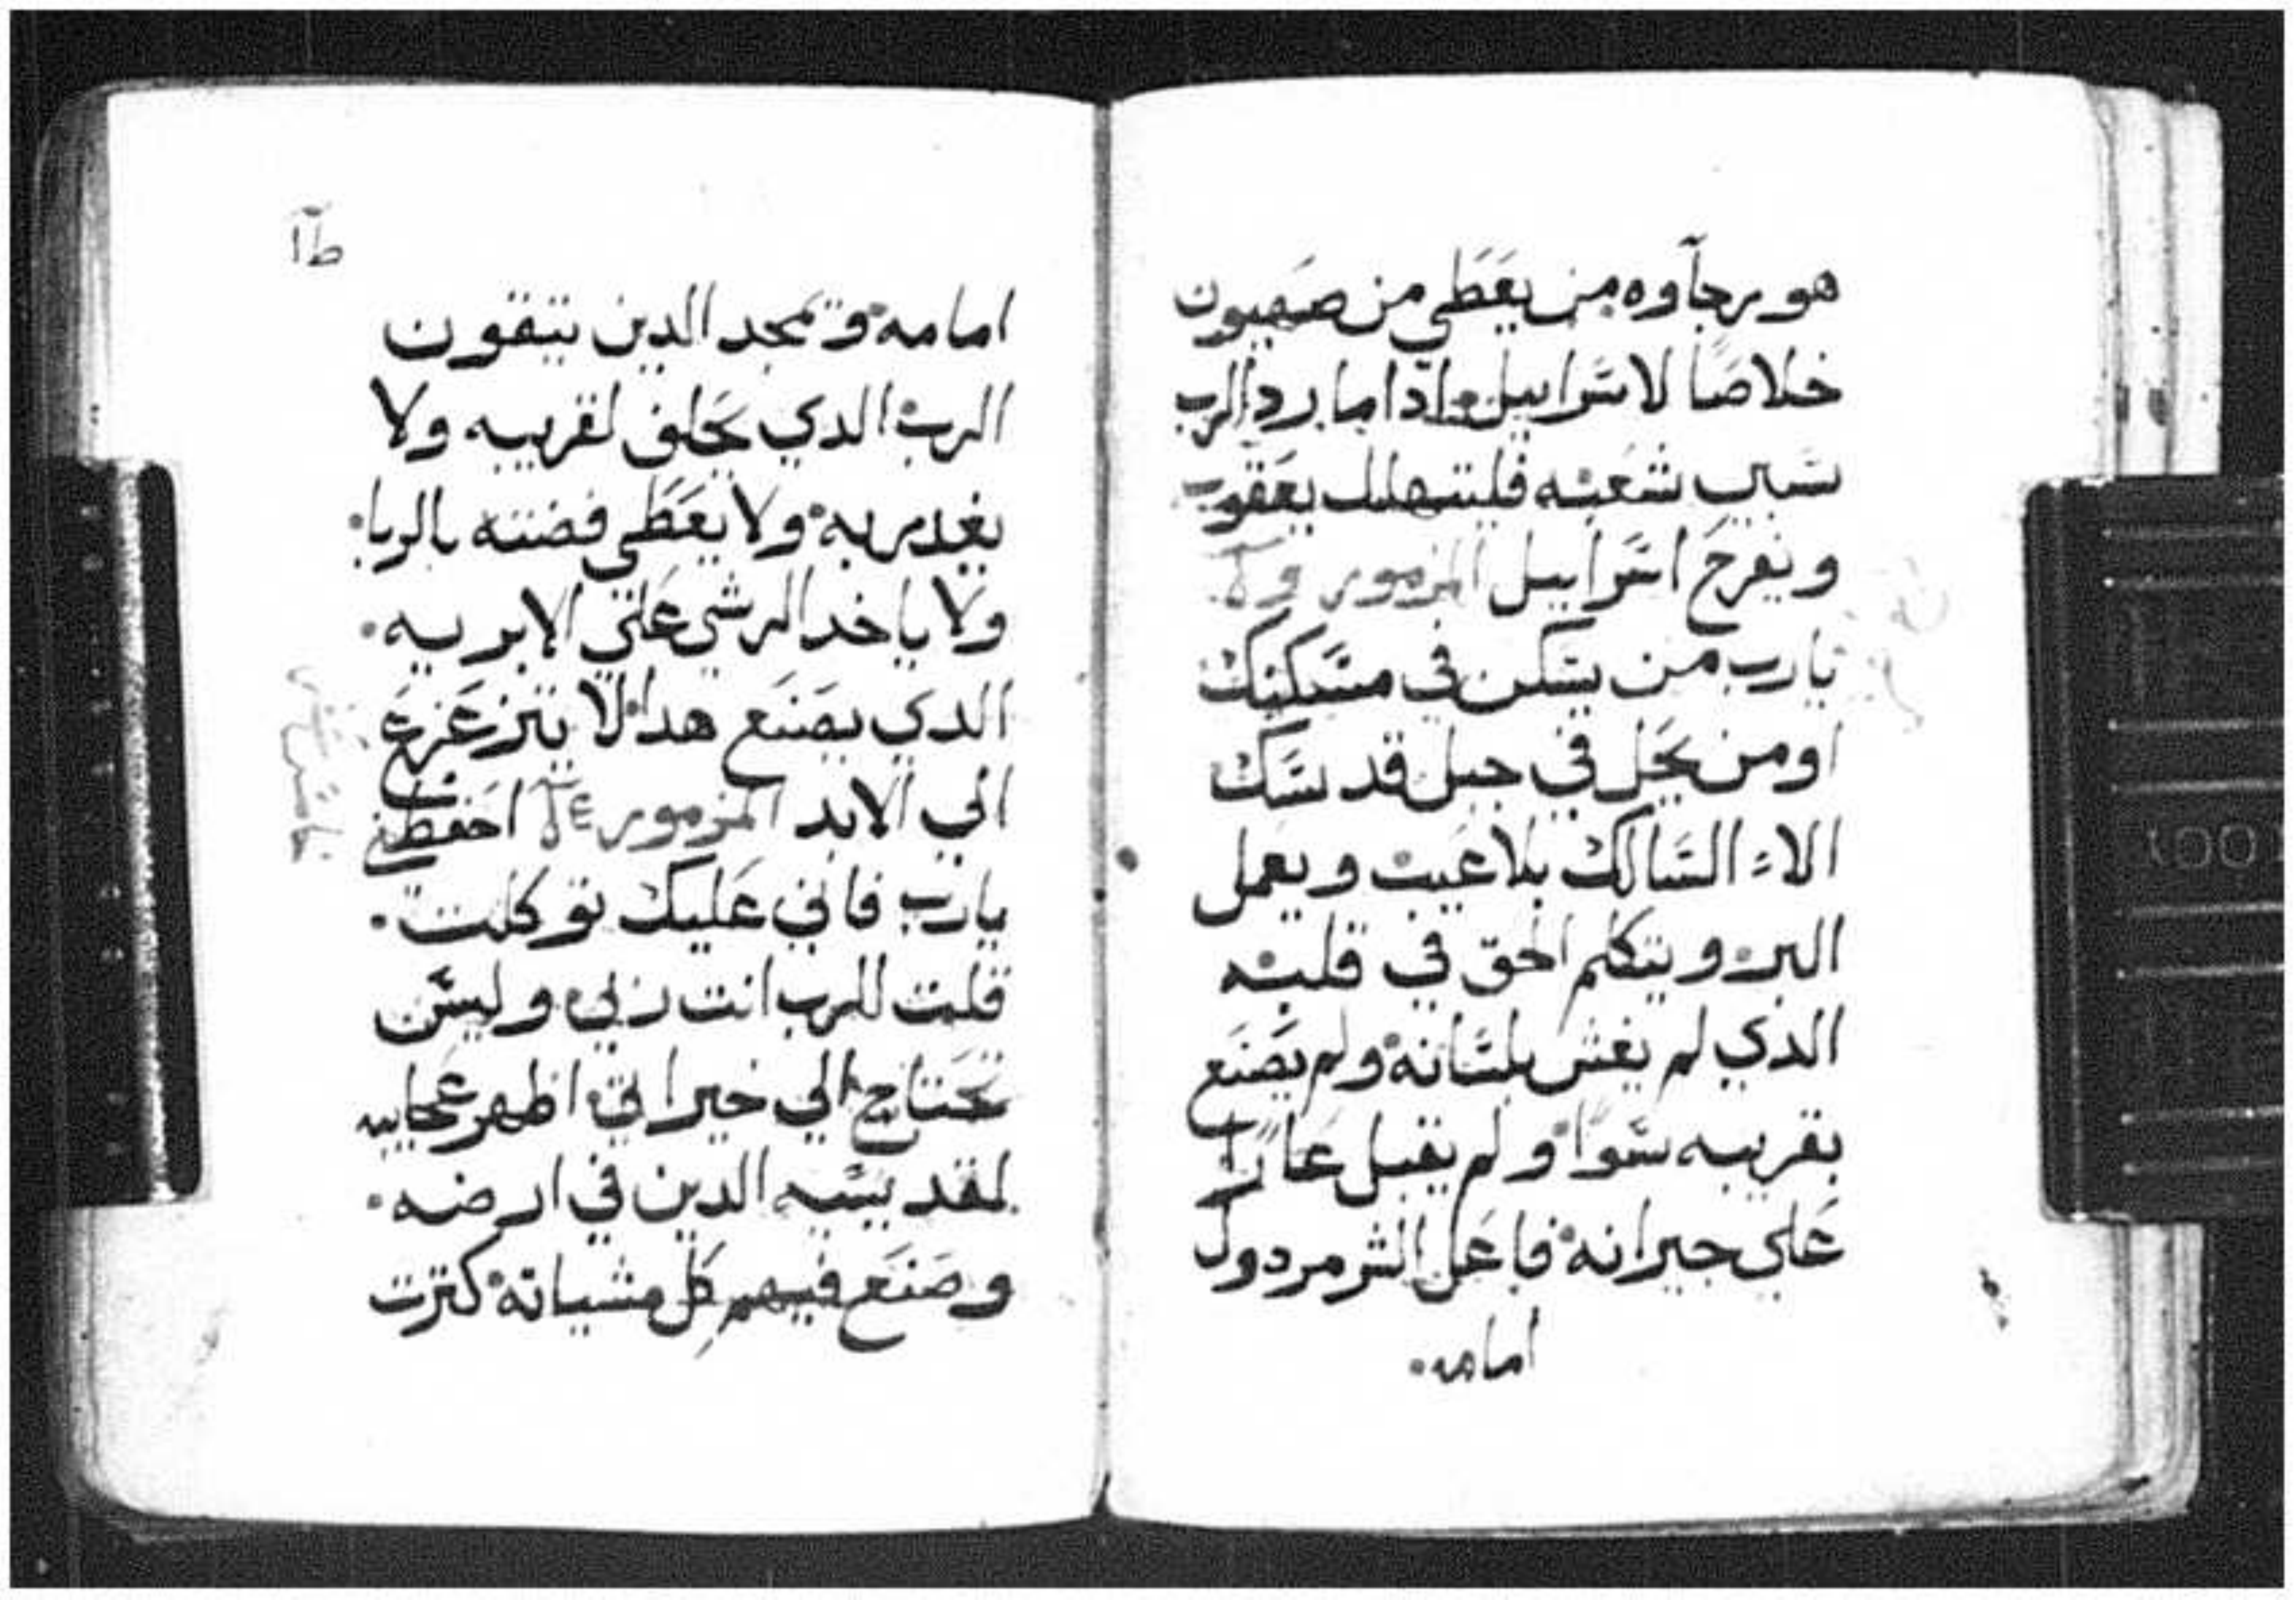 هو رجاوه من يعطي من صهيون
خلاصا لاسرابيل ادا ما رد الرب
سبي شعبه فليتهلل يعقوب
ويفرح اسرابيل المزمور
يارب من يسكن في مسكنك
او من يحل في جبل قدسك
الاء السالك بلا عيب ويعمل
البر ويتكلم الحق في قلبه
الدي لم يغش بلسانه ولم يصنع
بقريبه سوا ولم يقبل عارا
علي جيرانه فاعل الشر مردول
امامه
طا
امامه ويمجد الدين يتقون
الرب الدي يحلف لقريبه ولا
يغدر به ولا يعطي فضته بالربا
ولا ياخد الرشي علي الابريه
الدي يصنع هدا لا يتزعزع
الي الابد المزمور احفظني
يارب فاني عليك توكلت
قلت للرب انت ربي وليس
تحتاج الي خيراتي اظهر عجايبه
لقديسيه الدين في ارضه
وصنع فيهم كل مشياته كترت